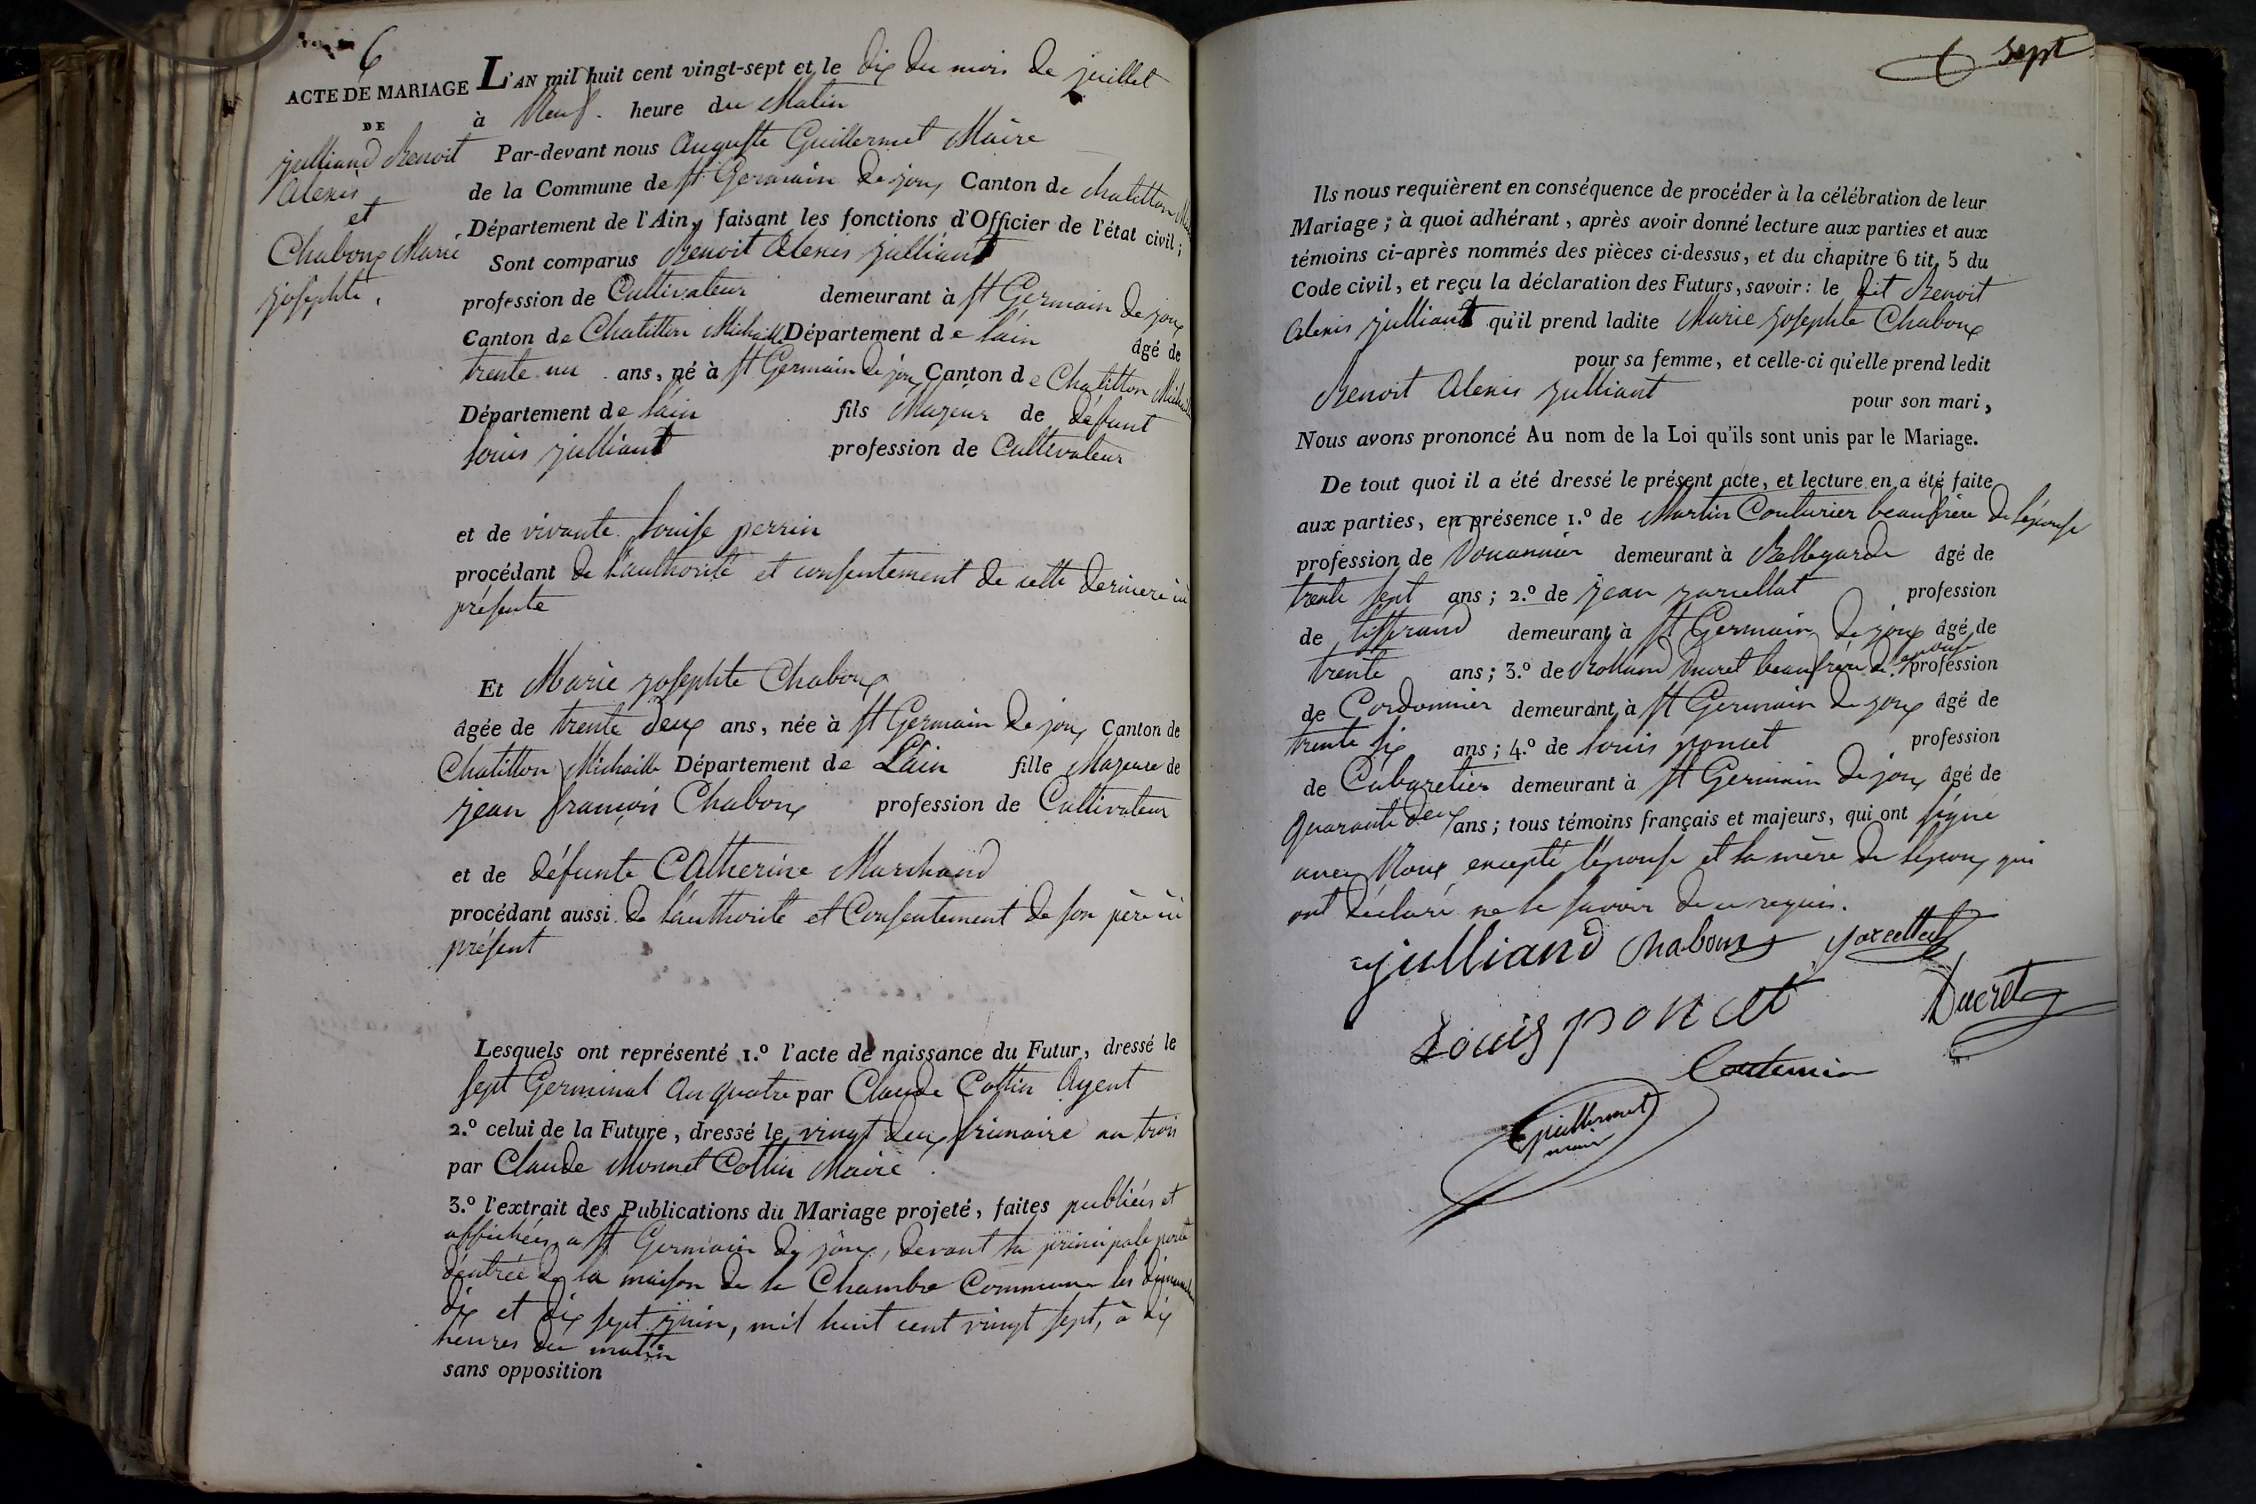 6
ACTE DE MARIAGE
DE
julliand Benoit
Alexis
et
Chaboux Marie
josephte.
L'AN mil huit cent vingt-sept et le dix du mois de juillet
à Neuf heure du Matin
Par-devant nous Auguste Guillermet Maire
de la Commune de st Germain de joux Canton de Chatillon
Département de l'Ain, faisant les fonctions d'Officier de l'état civil;
Sont comparus Benoit Alexis julliant
profession de Cultivateur demeurant à st Germain de joux
Canton de Chatillon Michaille Département de lain âgé de
trente un ans, né à st Germain de joux Canton de Chatillon Michaille
Département de lain fils Majeur de défunt
louis julliant profession de Cultivateur
et de vivante louise perrin
procédant de l'authorité et consentement de cette derniere ici
présente
Et Marie josephte Chaboux
âgée de trente deux ans, née à st Germain de joux Canton de
Chatillon Michaille Département de Lain fille Majeure de
jean françois Chaboux profession de Cultivateur
et de défunte Catherine Marchand
procédant aussi de l'authorité et Consentement de son père ici
présent
Lesquels ont représenté 1.º l'acte de naissance du Futur, dressé le
sept Germinal an quatre par Claude Cottin Agent
2.º celui de la Future, dressé le vingt deux frimaire an trois
par Claude Monnet Cottin Maire
3.º l'extrait des Publications du Mariage projeté, faites publiées et
affichées a st Germain de joux, devant la principale porte
d'entrée de la maison de la Chambre Commune les dimanches
dix et dix sept juin, mil huit cent vingt sept, à dix
heures du matin
sans opposition
6 sept
Ils nous requièrent en conséquence de procéder à la célébration de leur
Mariage; à quoi adhérant, après avoir donné lecture aux parties et aux
témoins ci-après nommés des pièces ci-dessus, et du chapitre 6 tit. 5 du
Code civil, et reçu la déclaration des Futurs, savoir: le dit Benoit
Alexis julliant qu'il prend ladite Marie josephte Chaboux
pour sa femme, et celle-ci qu'elle prend ledit
Benoit Alexis julliant pour son mari,
Nous avons prononcé Au nom de la Loi qu'ils sont unis par le Mariage.
De tout quoi il a été dressé le présent acte, et lecture en a été faite
aux parties, en présence 1.º de Martin Couturier beaufrère de l'épouse
profession de Douannier demeurant à Bellegarde âgé de
trente sept ans; 2.º de jean jarcellat profession
de tisserand demeurant à st Germain de joux âgé de
trente ans; 3.º de Rolland Ducret beaufrère de l'épouse profession
de Cordonnier demeurant à st Germain de joux âgé de
trente six ans; 4.º de louis poncet profession
de Cabaretier demeurant à st Germain de joux âgé de
quarante deux ans; tous témoins français et majeurs, qui ont signé
avec Nous excepté l'épouse et la mère de l'époux qui
ont déclaré ne le savoir de ce requis.
julliand Chaboux jarcellat
Louis poncet Ducret
Couturier
Guillermet
maire